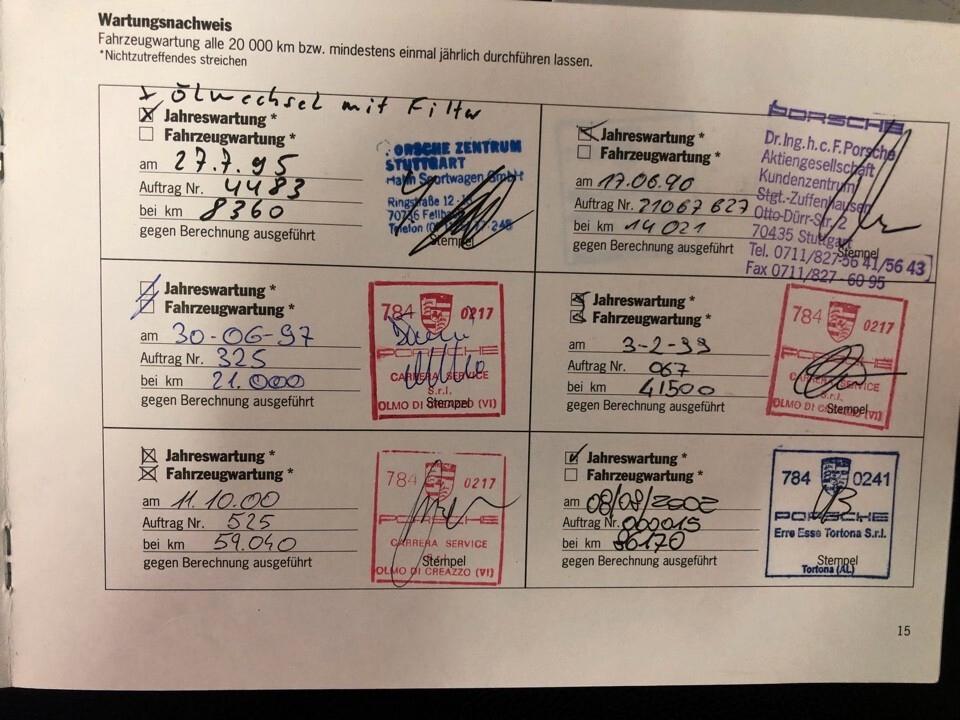 Wartungsnachweis
Fahrzeugwartung alle 20 000 km bzw. mindestens einmal jährlich durchführen lassen.
*Nichtzutreffendes streichen
+ Ölwechsel mit Filter
Jahreswartung *
Fahrzeugwartung *
am 27.7.95
Auftrag Nr. 4483
bei km 8360
gegen Berechnung ausgeführt
PORSCHE ZENTRUM
STUTTGART
Hahn Sportwagen GmbH
Ringstraße
70736 Fellbach
Telefon
Stempel
Jahreswartung *
Fahrzeugwartung *
am 17.06.90
Auftrag Nr. 21067 827
bei km 14021
gegen Berechnung ausgeführt
PORSCHE
Dr.Ing.h.c.F.Porsche
Aktiengesellschaft
Kundenzentrum
Stgt.-Zuffenhausen
Otto-Dürr-Str. 2
70435 Stuttgart
Stempel
Tel. 0711/827-56 41/56 43
Fax 0711/827 - 60 95
Jahreswartung *
Fahrzeugwartung *
am 30-06-97
Auftrag Nr. 325
bei km 21.000
gegen Berechnung ausgeführt
784 0217
PORSCHE
CARRERA SERVICE
S.r.l.
OLMO DI CREAZZO (VI)
Stempel
Jahreswartung *
Fahrzeugwartung *
am 3-2-99
Auftrag Nr. 067
bei km 41500
gegen Berechnung ausgeführt
784 0217
PORSCHE
CARRERA SERVICE
S.r.l.
OLMO DI CREAZZO (VI)
Stempel
Jahreswartung *
Fahrzeugwartung *
am 11.10.00
Auftrag Nr. 525
bei km 59.040
gegen Berechnung ausgeführt
784 0217
PORSCHE
CARRERA SERVICE
S.r.l.
Stempel
OLMO DI CREAZZO (VI)
Jahreswartung *
Fahrzeugwartung *
am 08/08/2002
Auftrag Nr. 000015
bei km 86170
gegen Berechnung ausgeführt
784 0241
PORSCHE
Erre Esse Tortona S.r.l.
Stempel
Tortona (AL)
15